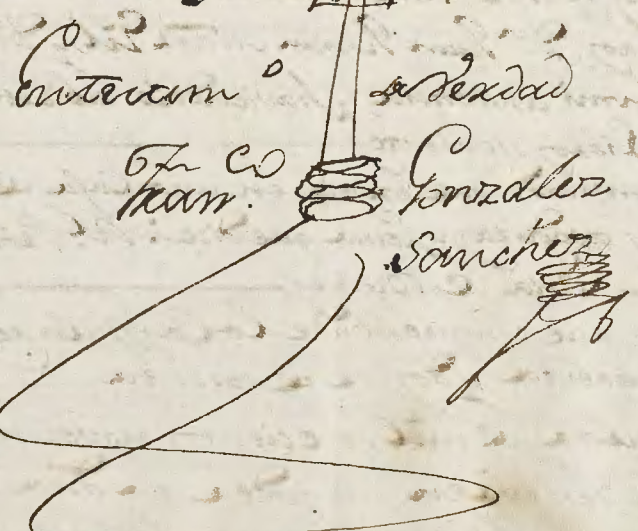 Enteram° de Verdad
Fran.co Gonzalez
Sanchez